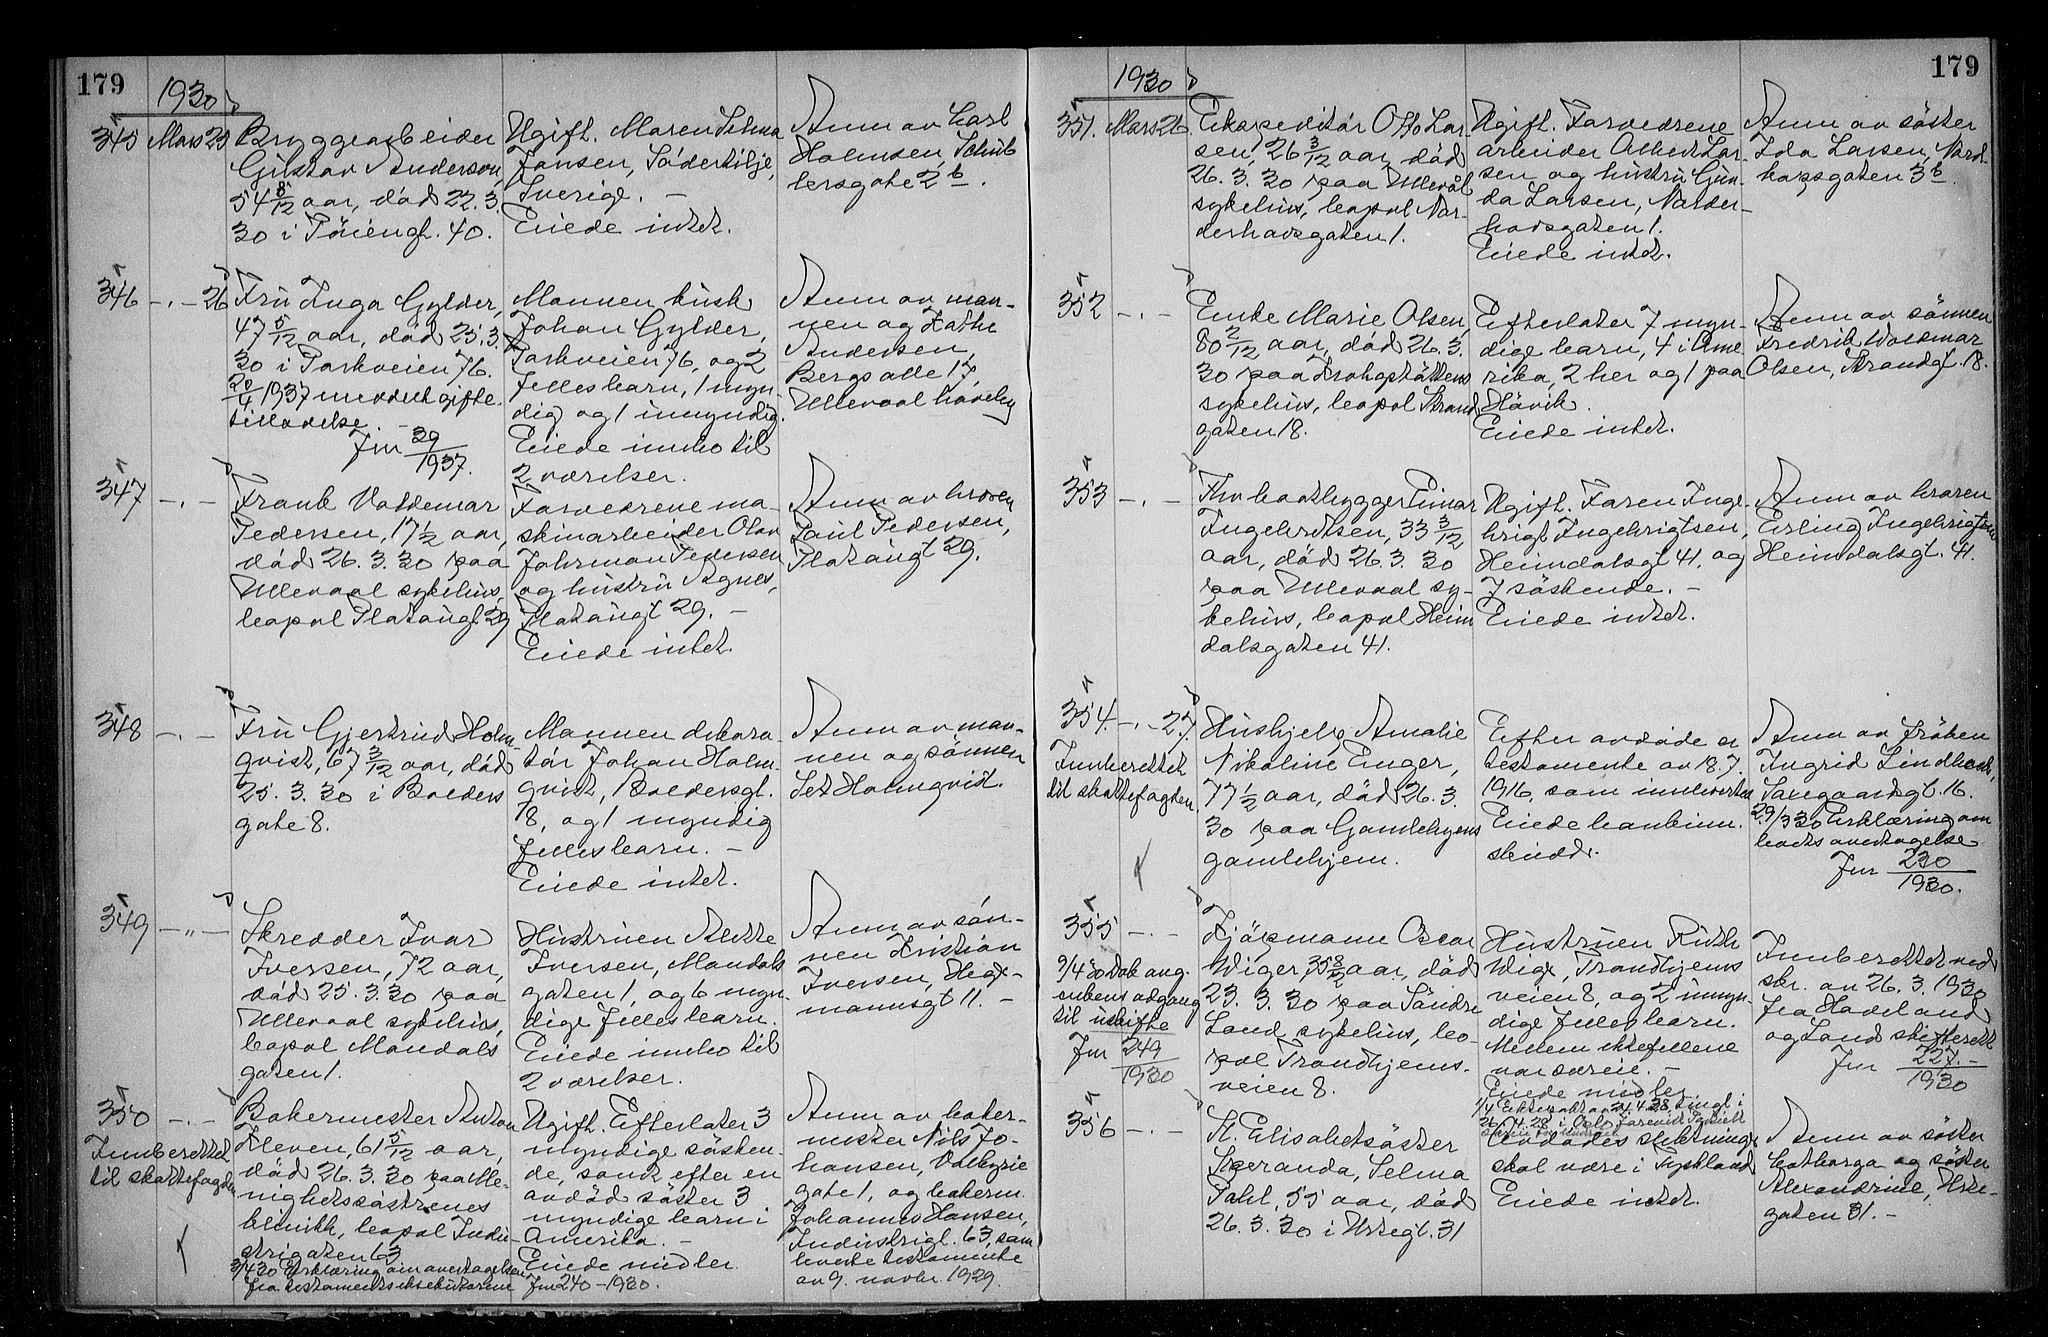 179
1930
345 Mars 25
Bryggearbeider
Gustav Anderson,
54 8/12 aar, död 22.3.
30 i Töiengt. 40.
Ugift. Maren Selma
Jansen, Södertilje,
Sverige. –
Eiede intet.
Anm av Carl
Holmsen, Schüb
lersgate 2 b.
346 -.- 26
Fru Inga Gylder,
47 5/12 aar, död 25.3.
30 i Parkveien 76.
20/4 1937 meddelt gifte-
tilladelse. –
Jnr 39/1937.
Mannen kusk
Johan Gylder,
Parkveien 76, og 2
felles barn, 1 myn-
dig og 1 umyndig.
Eiede innbo til
2 værelser.
Anm av man-
nen og Kathe
Andersen,
Bergs alle 17,
Ullevaal haveby
347 -.-
Frank Valdemar
Pedersen, 17 1/2 aar,
död 26.3.30 paa
Ullevaal sykehus,
bopel Platougt 29
Forældrene ma-
skinarbeider Olav
Fahrman Pedersen
og hustru Agnes,
Platougt 29. –
Eiede intet.
Anm av broren
Paul Pedersen,
Platougt 29.
348 -.-
Fru Gjertrud Holm-
qvist, 67 3/12 aar, död
25.3.30 i Bolders
gate 8.
Mannen dekora-
tör Johan Holm-
qvist, Boldersgt.
8, og 1 myndig
felles barn. –
Eiede intet.
Anm av man-
nen og sönnen
Set Holmqvist.
349 -"-
Skredder Ivar
Iversen, 72 aar,
död 25.3.30 paa
Ullevaal sykehus,
bopel Mandals
gaten 1.
Hustruen Alette
Iversen, Mandals
gaten 1, og 6 myn-
dige felles barn.
Eiede innbo til
2 værelser.
Anm av sön-
nen Kristian
Iversen, Hege-
mannsgt 11. –
350 -.-
Innberettet
til skattefogden
Bakermester Anton
Kleven, 61 5/12 aar,
död 26.3.30 paa Me-
nighetssöstrenes
klinikk, bopel Indu-
strigaten 63
3/4 30 Erklæring om overtagelsen
fra testamentseksekutorene
Ugift. Efterlater 3
myndige sösken-
de, samt efter en
avdöd söster 3
myndige barn i
Amerika. –
Eiede midler.
Jnr 240 – 1930.
Anm av baker-
mester Nils Jo-
hansen, Valkyrie
gate 1, og bakerm.
Johannes Hansen,
Industrigt. 63, som
leverte testamente
av 9. novbr. 1929.
179
1930
351. Mars 26
Ekspeditör Otto Lar
sen, 26 3/12 aar, död
26.3.30 paa Ullevål
sykehus, bopel Nor-
derhovsgaten 1.
Ugift. Forældrene
arbeider Albert Lar-
sen og hustru Gun-
da Larsen, Norder-
hovsgaten 1.
Eiede intet.
Anm av söster
Ida Larsen, Nord-
kapsgaten 3 b
352 -.-
Enke Marie Olsen,
80 2/12 aar, död 26.3.
30 paa Prohopstøttens
sykehus, bopel Strand
gaten 18.
Efterlater 7 myn-
dige barn, 4 i Ame-
rika, 2 her og 1 paa
Hövik.
Eiede intet.
Anm av sönnen
Fredrik Woldemar
Olsen, Strandgt. 18.
353 -.-
Fhv baatbygger Einar
Ingebretsen, 33 3/12
aar, död 26.3.30
paa Ullevaal sy-
kehus, bopel Heim
dalsgaten 41.
Ugift. Faren Inge-
brigt Ingebrigtsen,
Heimdalsgt 41, og
7 söskende. –
Eiede intet.
Anm av broren
Erling Ingebrigtsen
Heimdalsgt. 41.
354. -.- 27.
Innberettet
til skattefogden
Hushjelp Amalie
Nikoline Enger,
77 1/2 aar, död 26.3.
30 paa Gamlebyens
gamlehjem.
Efter avdöde er
testamente av 18.7.
1916, som innleveres
Eiede bankinn-
skudd.
Anm av fröken
Ingrid Lindbæk,
Saxegaardsgt. 16.
29/3 30 Erklæring om
boets overtagelse
Jnr 230/1930.
355 -.-
9/4 30 Dok ang.
enkens adgang
til uskifte
Jnr 249/1930
Kjöpmann Oscar
Wiger, 35 8/12 aar, död
23.3.30 paa Söndre
Land sykehus, bo-
pel Trondhjems-
veien 8.
Hustruen Ruth
Wiger, Trondhjems
veien 8, og 2 umyn-
dige felles barn.
Mellem ektefellene
var særeie. –
Eiede midler
1/4 Ektepakt av 21.4.28, tingl. i
26/4 28 i Oslo
Innberettet ved
skr. av 26.3.1930
fra Hadeland
og Land skifterett
Jnr 227/1930
356 -.-
St. Elisabetsöster
Speranda, Selma
Pahl, 55 aar, död
26.3.30 i Urtegt. 31
Avdödes slektninge
skal være i Tyskland
Eiede intet.
Anm av söster
Cotharga og söster
Alexandrine, Urte-
gaten 31. –